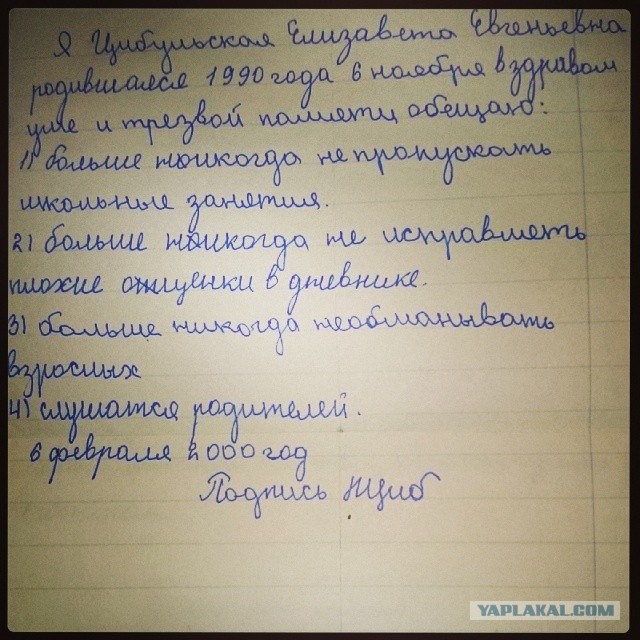 Я Цибульская Елизавета Евгеньевна
родившаяся 1990 года 6 ноября в здравом
уме и трезвой памяти обещаю:
1) больше никогда не пропускать
школьные занятия.
2) больше никогда не исправлять
плохие оценки в дневнике.
3) больше никогда необманывать
взрослых
4) слушатся родителей.
6 февраля 2000 год
Подпись
YAPLAKAL.COM